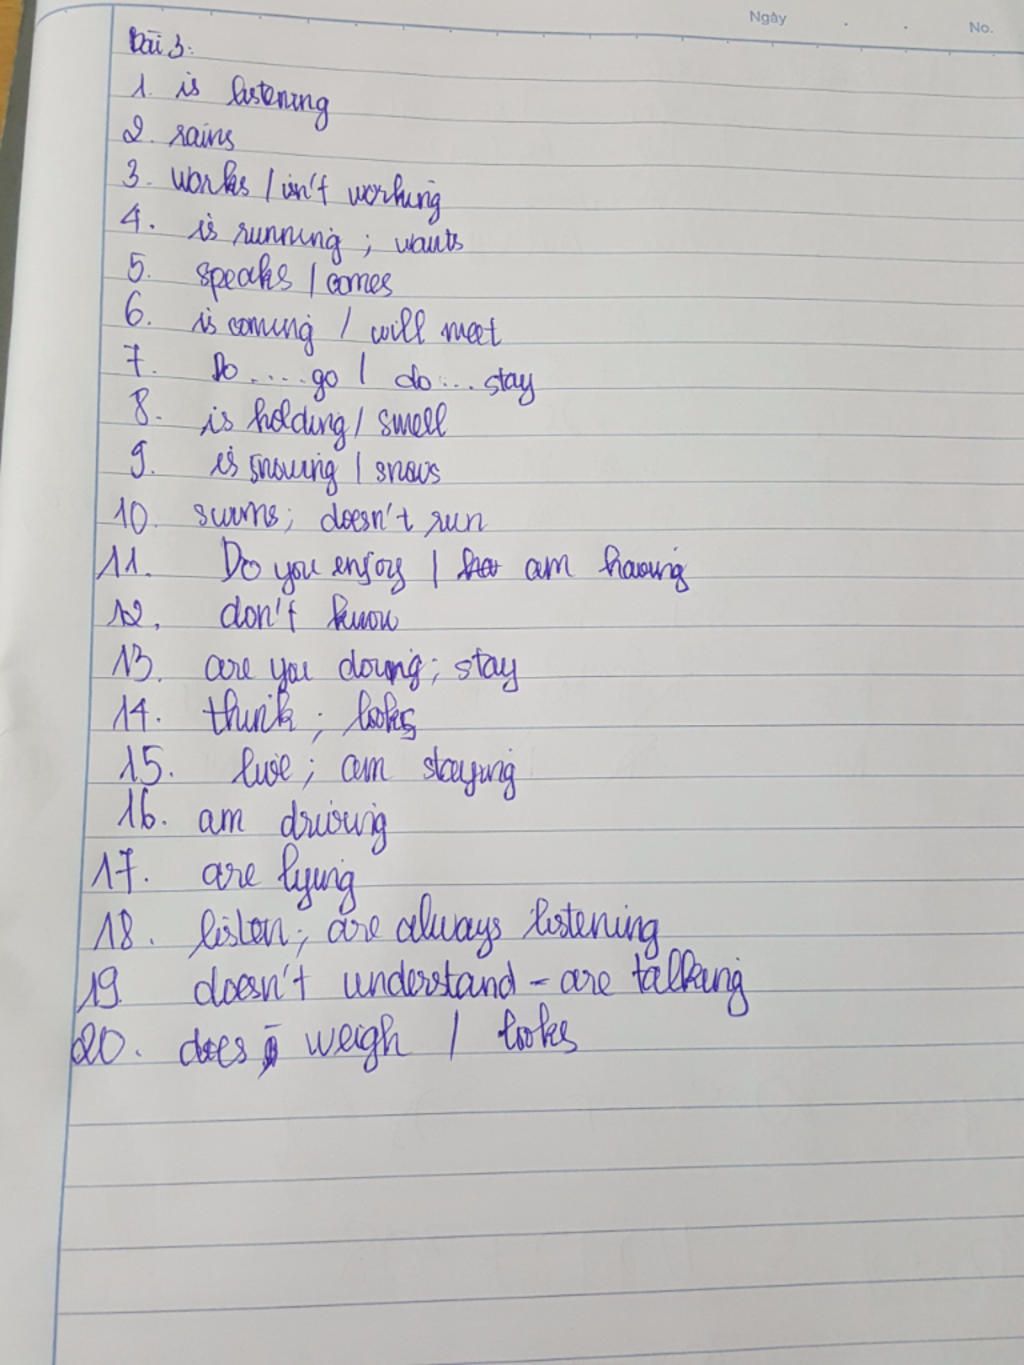 Ngày . .
No.
Bài 3:
1. is listening
2. rains
3. works / isn't working
4. is running ; wants
5. speaks / comes
6. is coming / will meet
7. Do ..... go / do ... stay
8. is holding / smell
9. is snowing / snows
10. swims ; doesn't run
11. Do you enjoy / am having
12. don't know
13. are you doing ; stay
14. think ; looks
15. live ; am staying
16. am driving
17. are lying
18. listen ; are always listening
19 doesn't understand - are talking
20. does weigh / looks